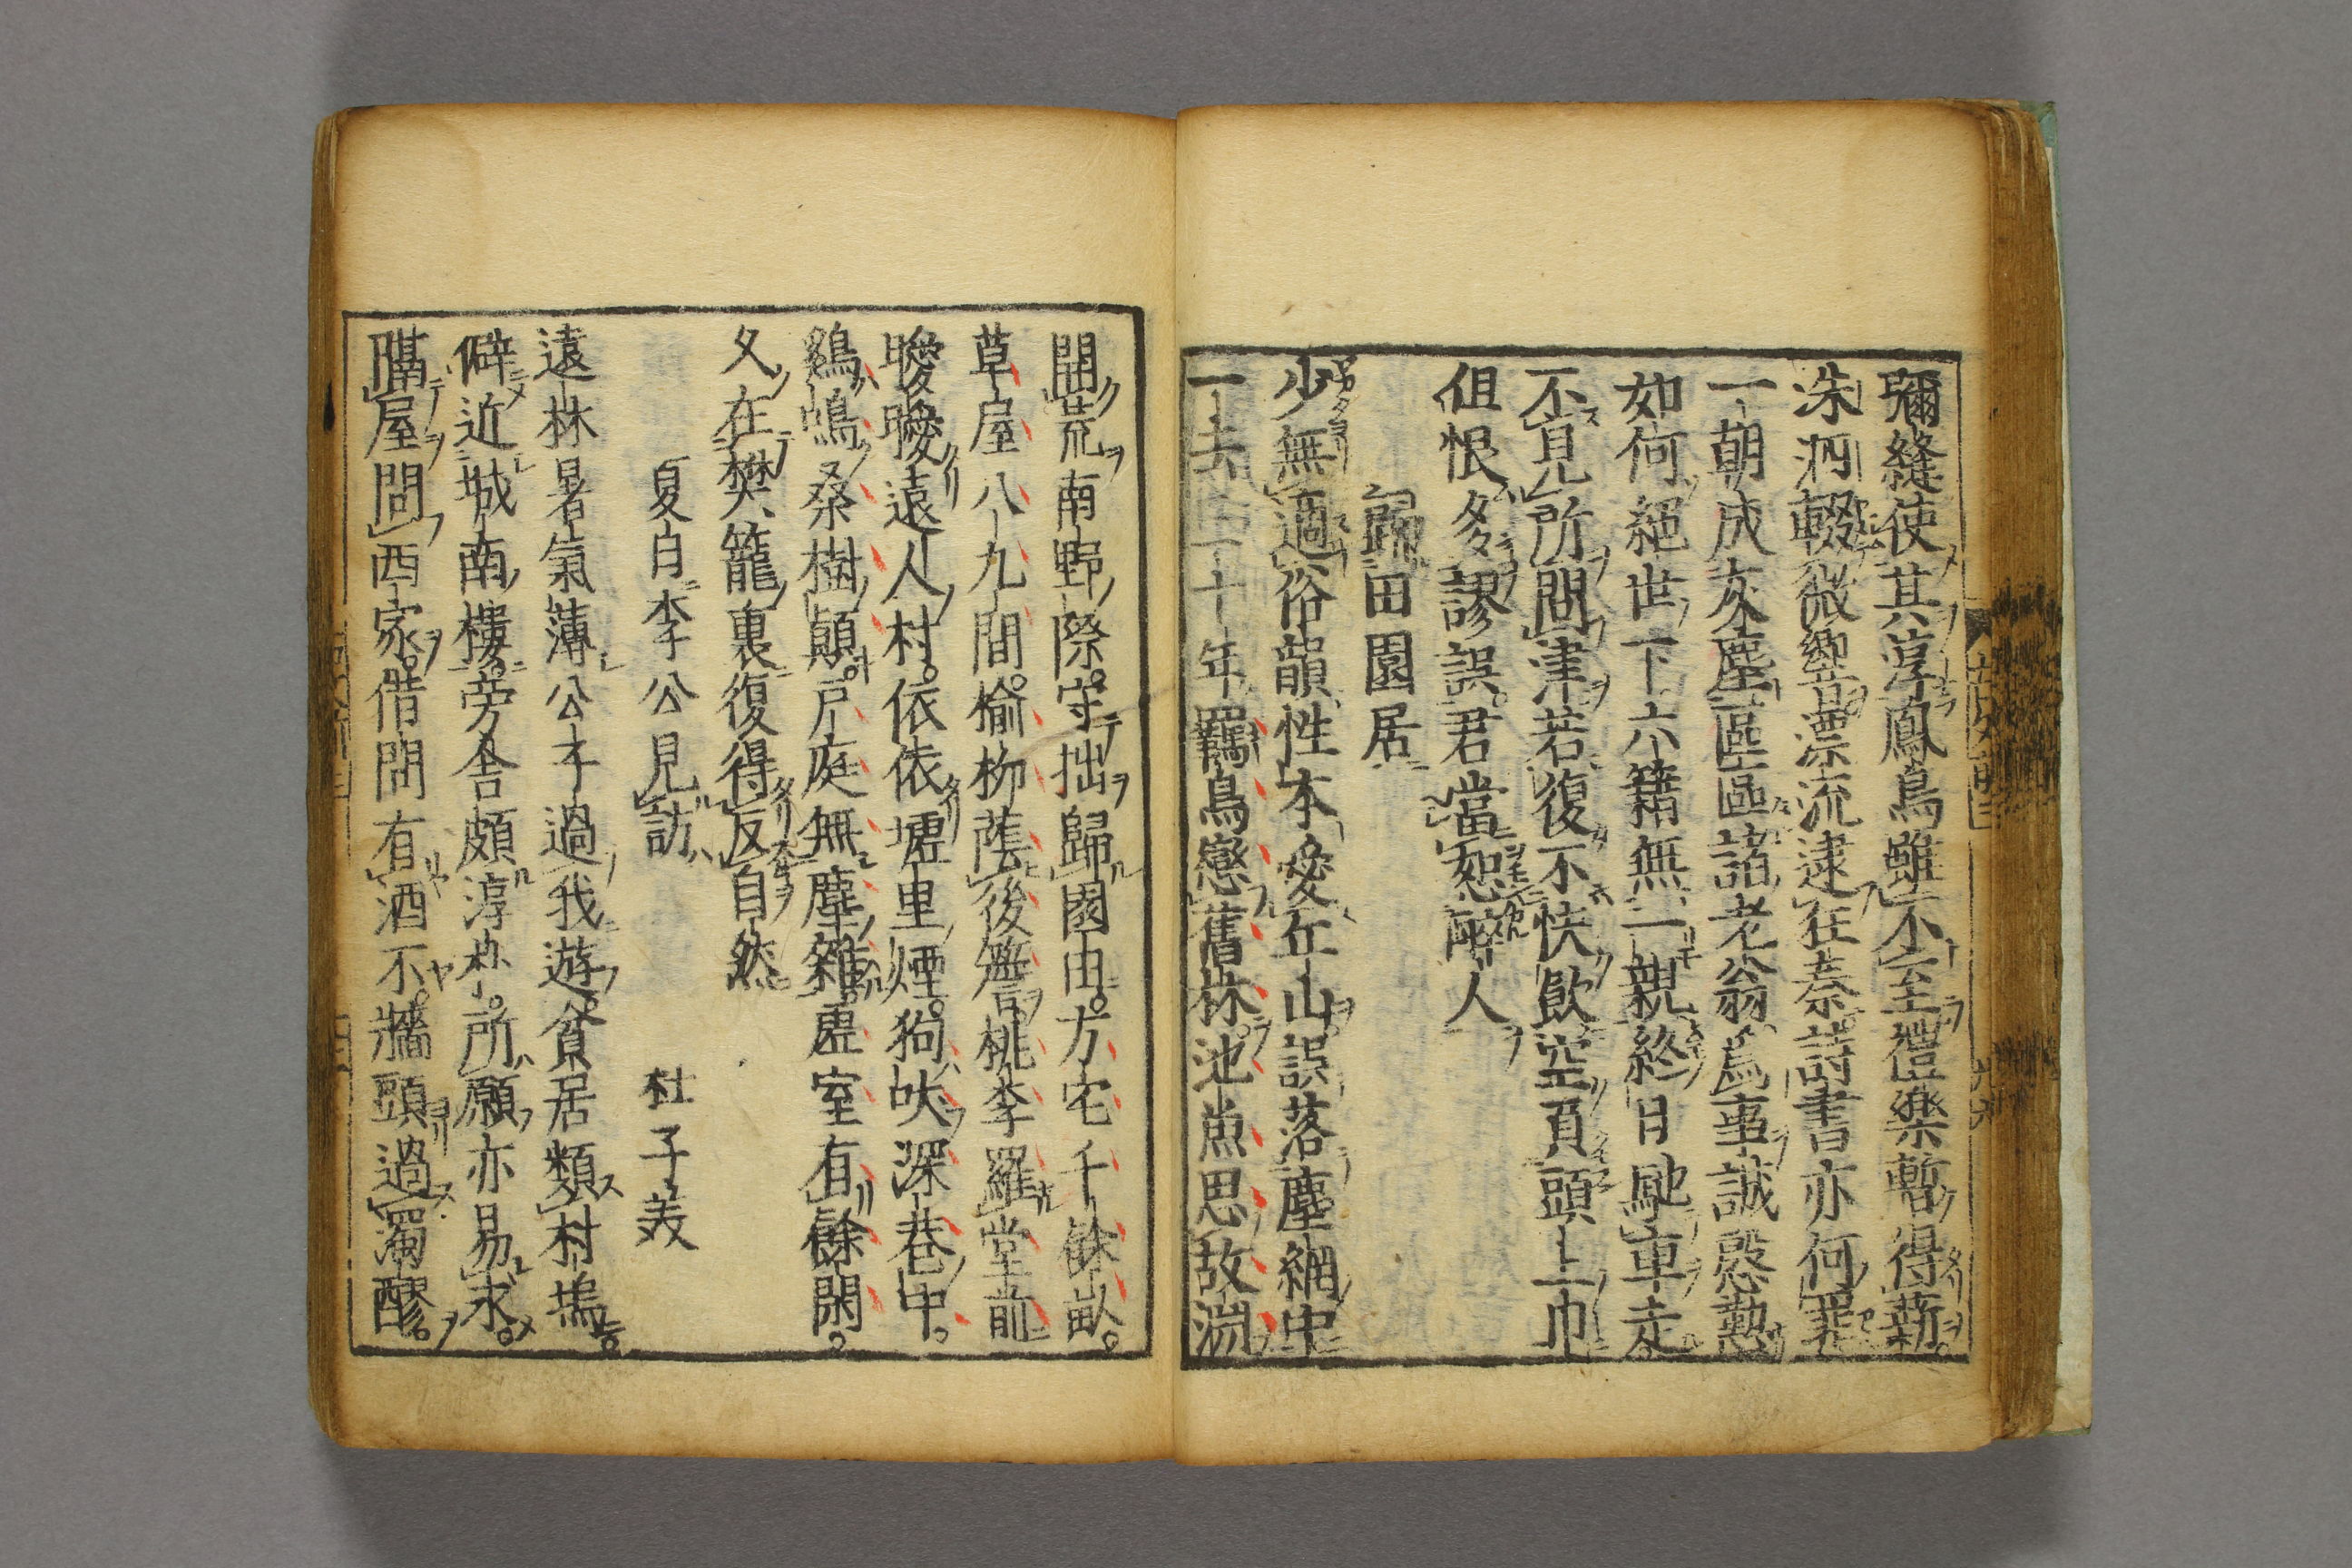 彌縫使其淳鳳鳥雖不至禮樂暫得薪
洙泗輟微響漂流逮狂秦詩書亦何罪
一朝成灰塵區區諸老翁爲事誠慇懃
如何絕世下六籍無一親終日馳車走
不見所問津若復不快飲空負頭上巾
但恨多謬誤君當恕醉人
歸田園居
少無適俗韻性本愛丘山誤落塵網中
一去三十年羈鳥戀舊林池魚思故淵
開荒南野際守拙歸園田方宅十餘畝
草屋八九間榆柳蔭後簷桃李羅堂前
曖曖遠人村依依墟里煙狗吠深巷中
鷄鳴桑樹顚戸庭無塵雜虛室有餘閑
久在樊籠裏復得反自然
夏日李公見訪 杜子美
遠林暑氣薄公子過我遊貧居類村塢
僻近城南樓旁舍頗淳朴所願亦易求
隔屋問西家借問有酒不牆頭過濁醪